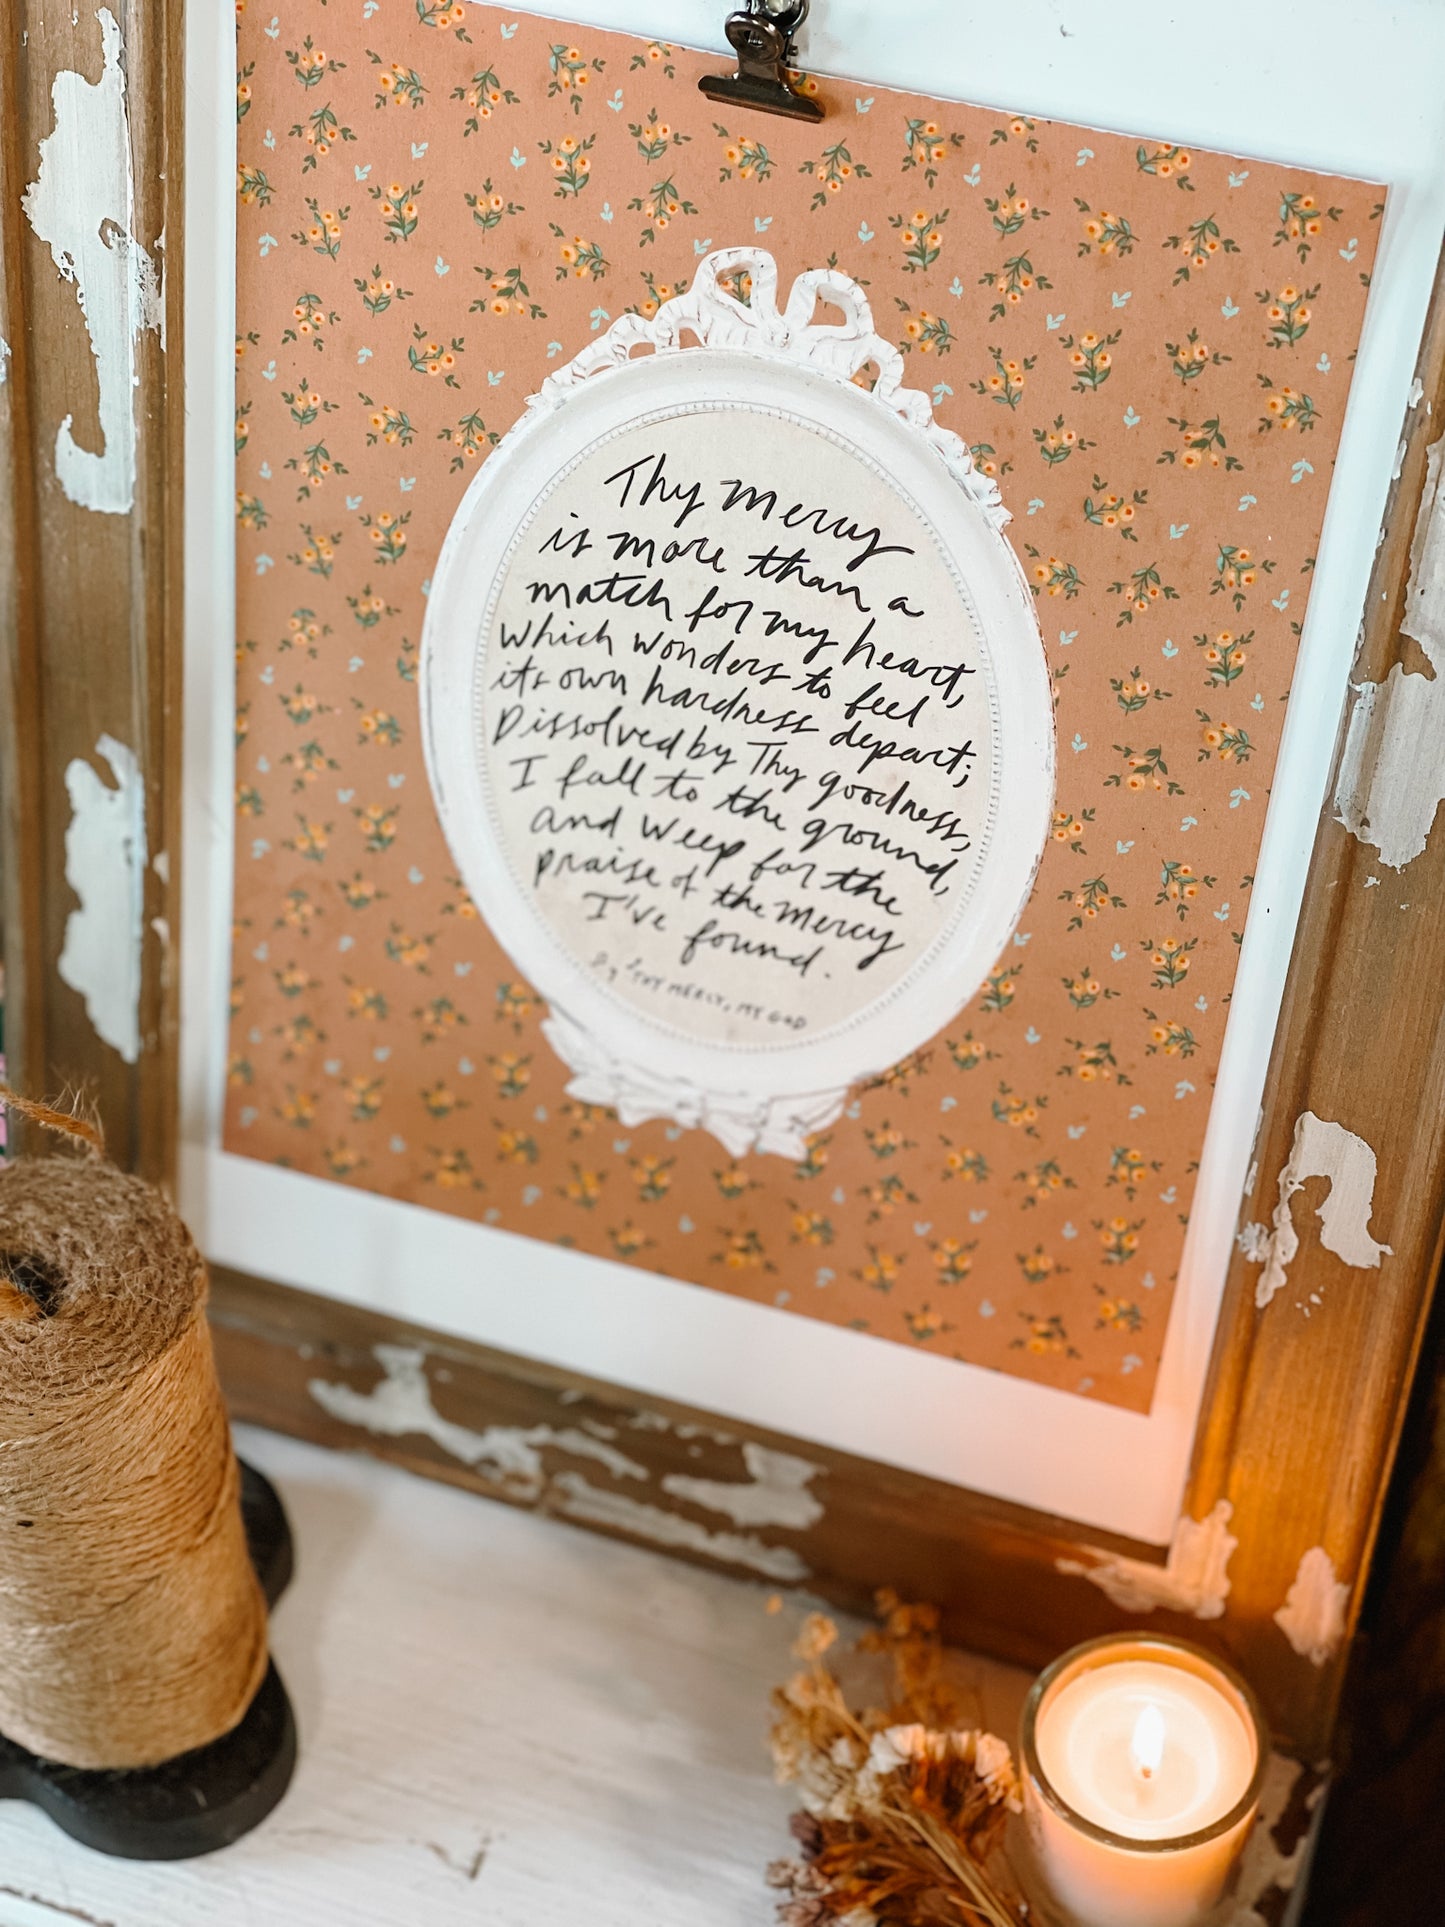 Thy mercy
is more than a
match for my heart,
Which wonders to feel
its own hardness depart;
Dissolved by Thy goodness,
I fall to the ground,
and weep for the
praise of the mercy
I've found.
THY MERCY, MY GOD